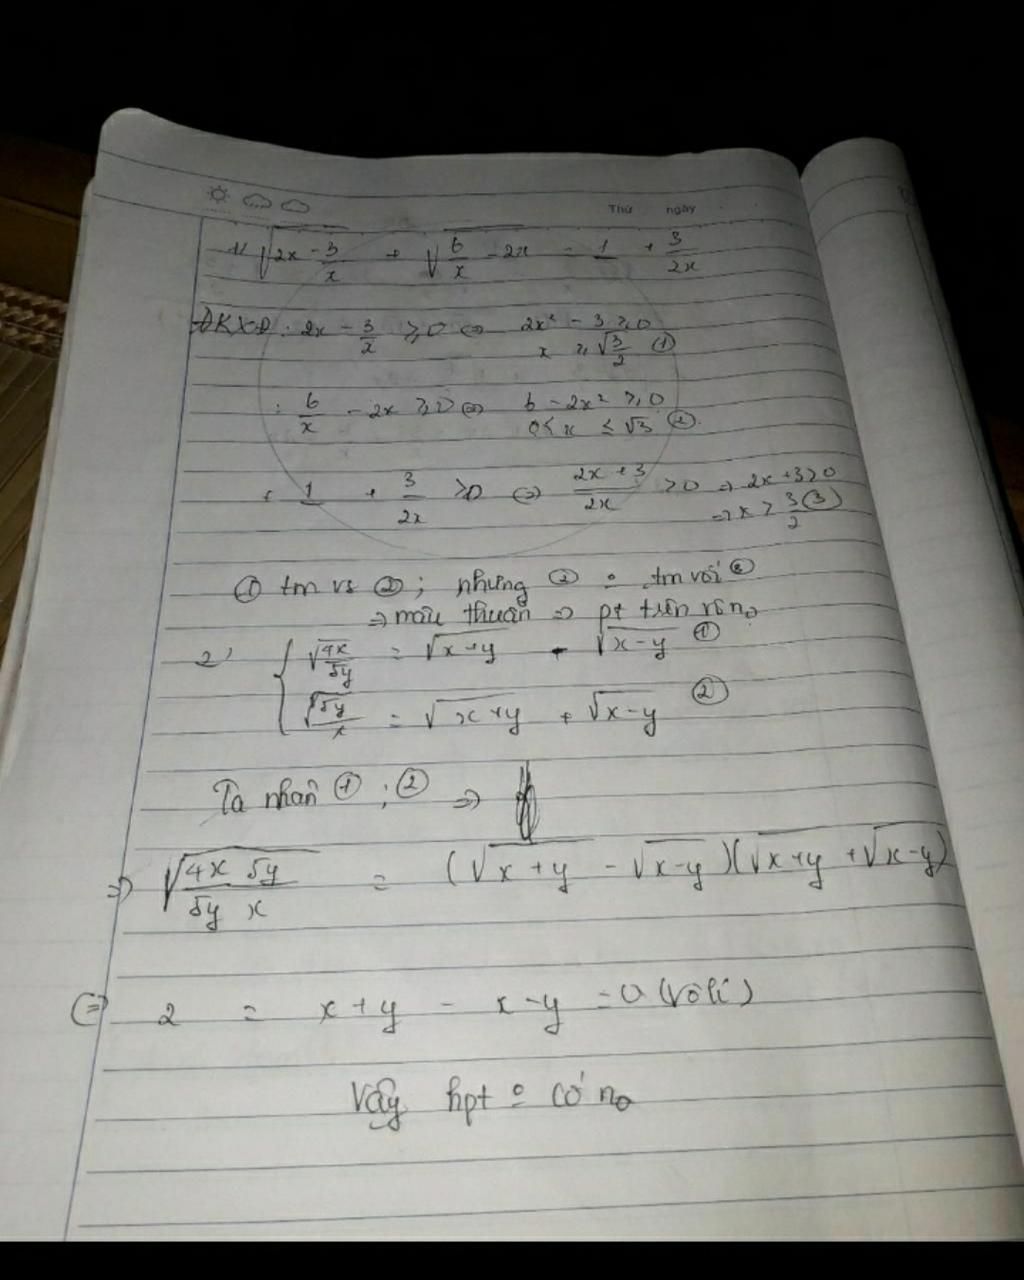 Thứ ngày
1/ √(2x - 3/x) + √(6/x - 2x) = 1 + 3/2x
ĐKXĐ: 2x - 3/x ≥ 0 ⇔ 2x² - 3 ≥ 0
x ≥ √(3/2) ①
: 6/x - 2x ≥ 0 ⇔ 6 - 2x² ≥ 0
0 < x ≤ √3 ②
+ 1 + 3/2x > 0 ⇔ (2x + 3)/2x > 0 ⇒ 2x + 3 > 0
⇒ x > 3/2 ③
① tm vs ②; nhưng ② o tm với ③
⇒ mâu thuẫn ⇒ pt trên vô no
2) { √(4x/5y) = √(x+y) - √(x-y) ①
√(5y/x) = √(x+y) + √(x-y) ②
Ta nhân ①; ② ⇒
⇒ √(4x 5y / 5y x) = (√(x+y) - √(x-y))(√(x+y) + √(x-y))
⇔ 2 = x+y - x-y = 0 (vô lí)
Vậy hpt o có no